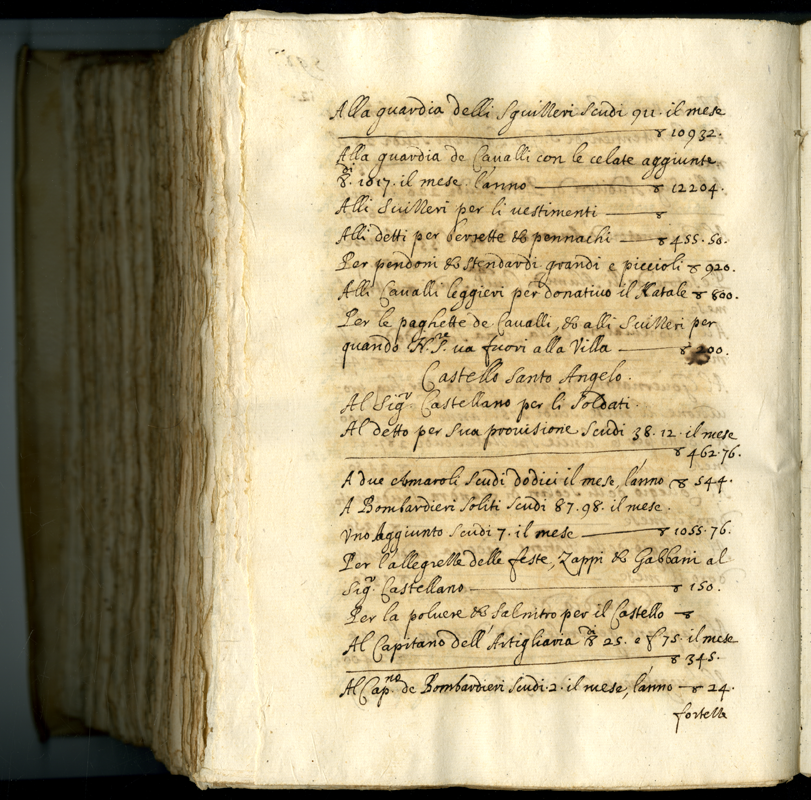 Alla guardia delli Sguilleri scudi 911. il mese
10932.
Alla guardia de Cavalli con le celate aggiunte
1017. il mese l'anno 12204.
Alli Suilleri per li vestimenti
Alli detti per berrette & pennachi 455.50.
Per pendoni & stendardi grandi e piccioli 920.
Alli Cavalli leggieri per donativo il Natale 800.
Per le paghette de Cavalli, & alli Suilleri per
quando N. S.re va fuori alla Villa 200.
Castello Santo Angelo.
Al Sigr. Castellano per li Soldati.
Al detto per sua provisione scudi 38.12. il mese
462.76.
A due Armaroli scudi dodici il mese, l'anno 544.
A Bombardieri soliti scudi 87.98. il mese.
Uno Aggiunto scudi 7. il mese 1055.76.
Per l'allegrezze delle feste, Zappi & Gabbani al
Sigr. Castellano 150.
Per la polvere & salnitro per il Castello
Al Capitano dell'Artigliaria 25. e 75. il mese
345.
Al Cap.no de Bombardieri scudi 2. il mese, l'anno 24.